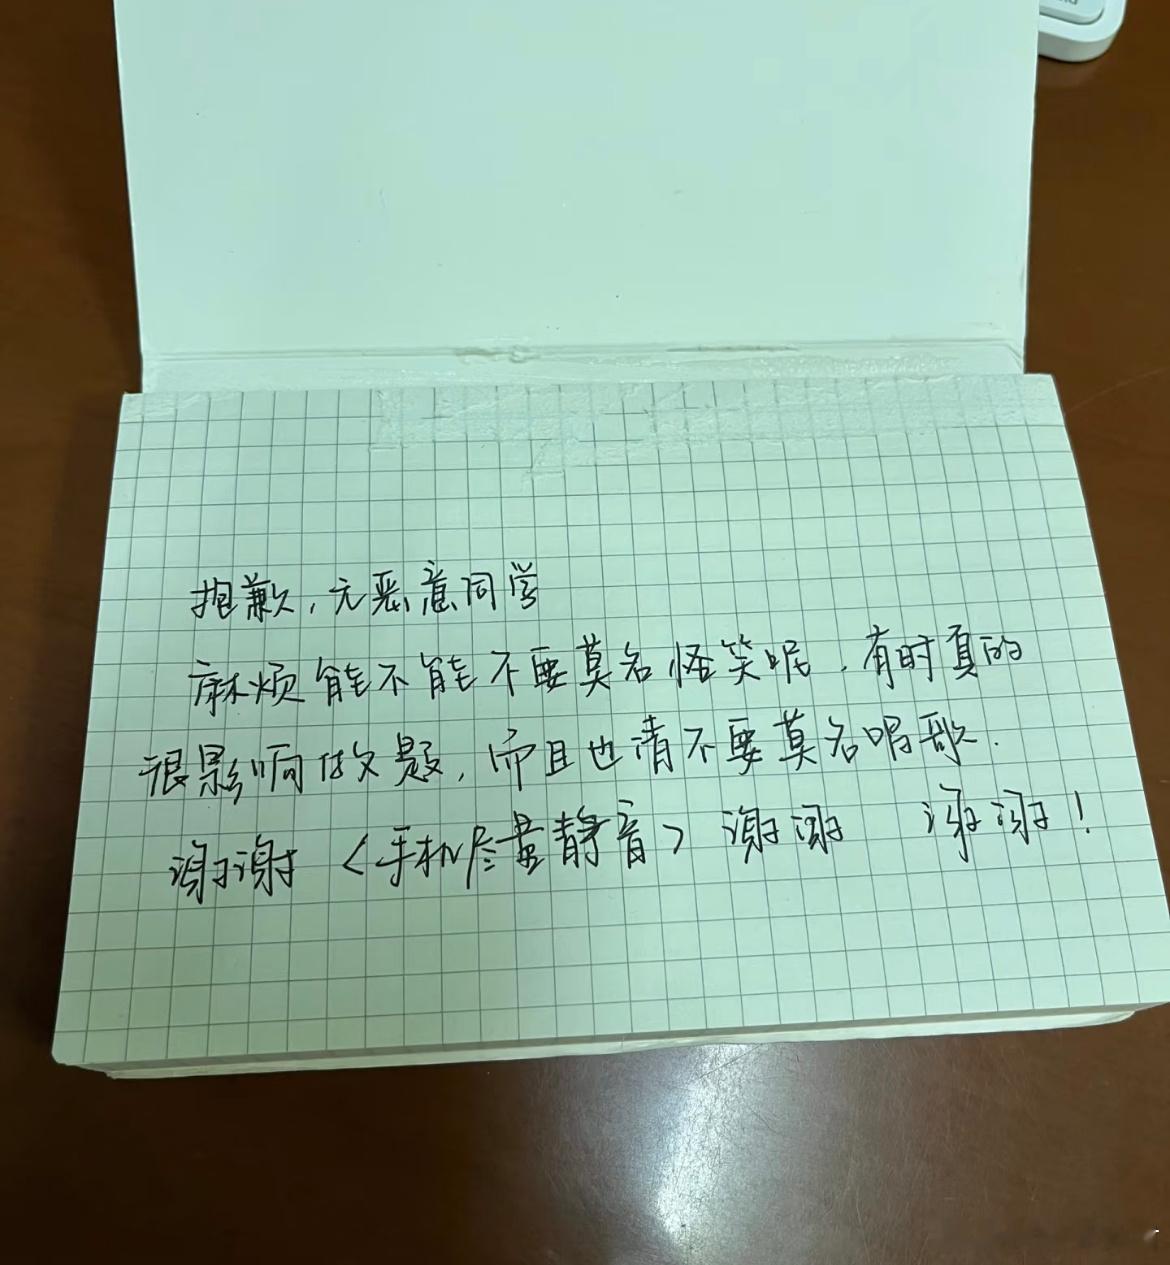 抱歉，无恶意同学
麻烦能不能不要莫名怪笑呢，有时真的
很影响做题，而且也请不要莫名唱歌.
谢谢<手机尽量静音>谢谢 谢谢！